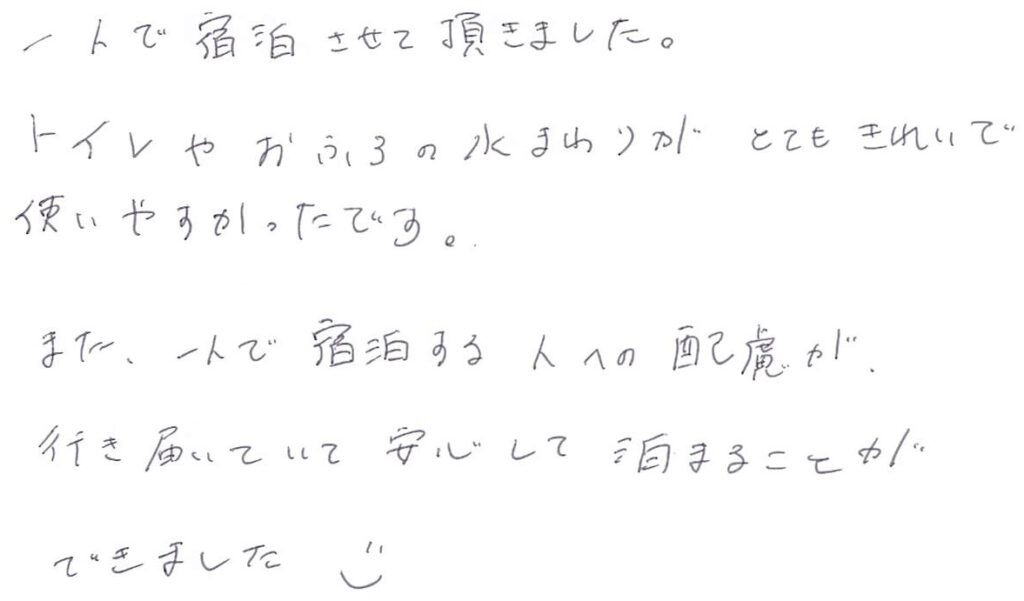 一人で宿泊させて頂きました。
トイレやおふろの水まわりがとてもきれいで
使いやすかったです。
また、一人で宿泊する人への配慮が、
行き届いていて安心して泊まることが
できました